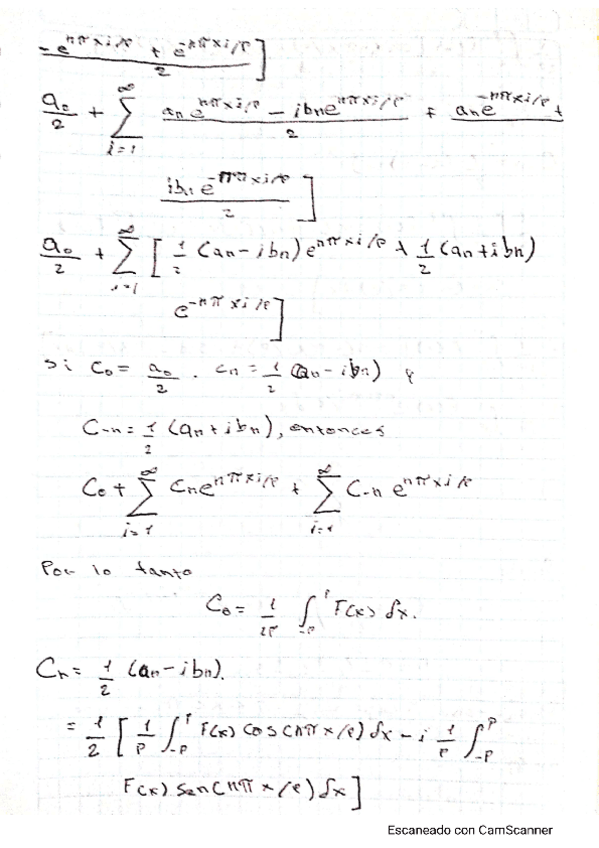 - e^{nπxi/p} + e^{-nπxi/p} / 2 ]
a_0/2 + ∑_{i=1}^{∞} a_n e^{nπxi/p} - ib_n e^{nπxi/p} / 2 + a_n e^{-nπxi/p} +
ib_n e^{-nπxi/p} / 2 ]
a_0/2 + ∑_{i=1}^{∞} [ 1/2 (a_n - ib_n) e^{nπxi/p} + 1/2 (a_n + ib_n)
e^{-nπxi/p} ]
si C_0 = a_0/2 . C_n = 1/2 (a_n - ib_n) y
C_{-n} = 1/2 (a_n + ib_n), entonces
C_0 + ∑_{i=1}^{∞} C_n e^{nπxi/p} + ∑_{i=1}^{∞} C_{-n} e^{nπxi/p}
Por lo tanto
C_0 = 1/2p ∫_{-p}^{p} F(x) dx.
C_n = 1/2 (a_n - ib_n).
= 1/2 [ 1/p ∫_{-p}^{p} F(x) cos(nπx/p) dx - i 1/p ∫_{-p}^{p}
F(x) sen(nπx/p) dx ]
Escaneado con CamScanner